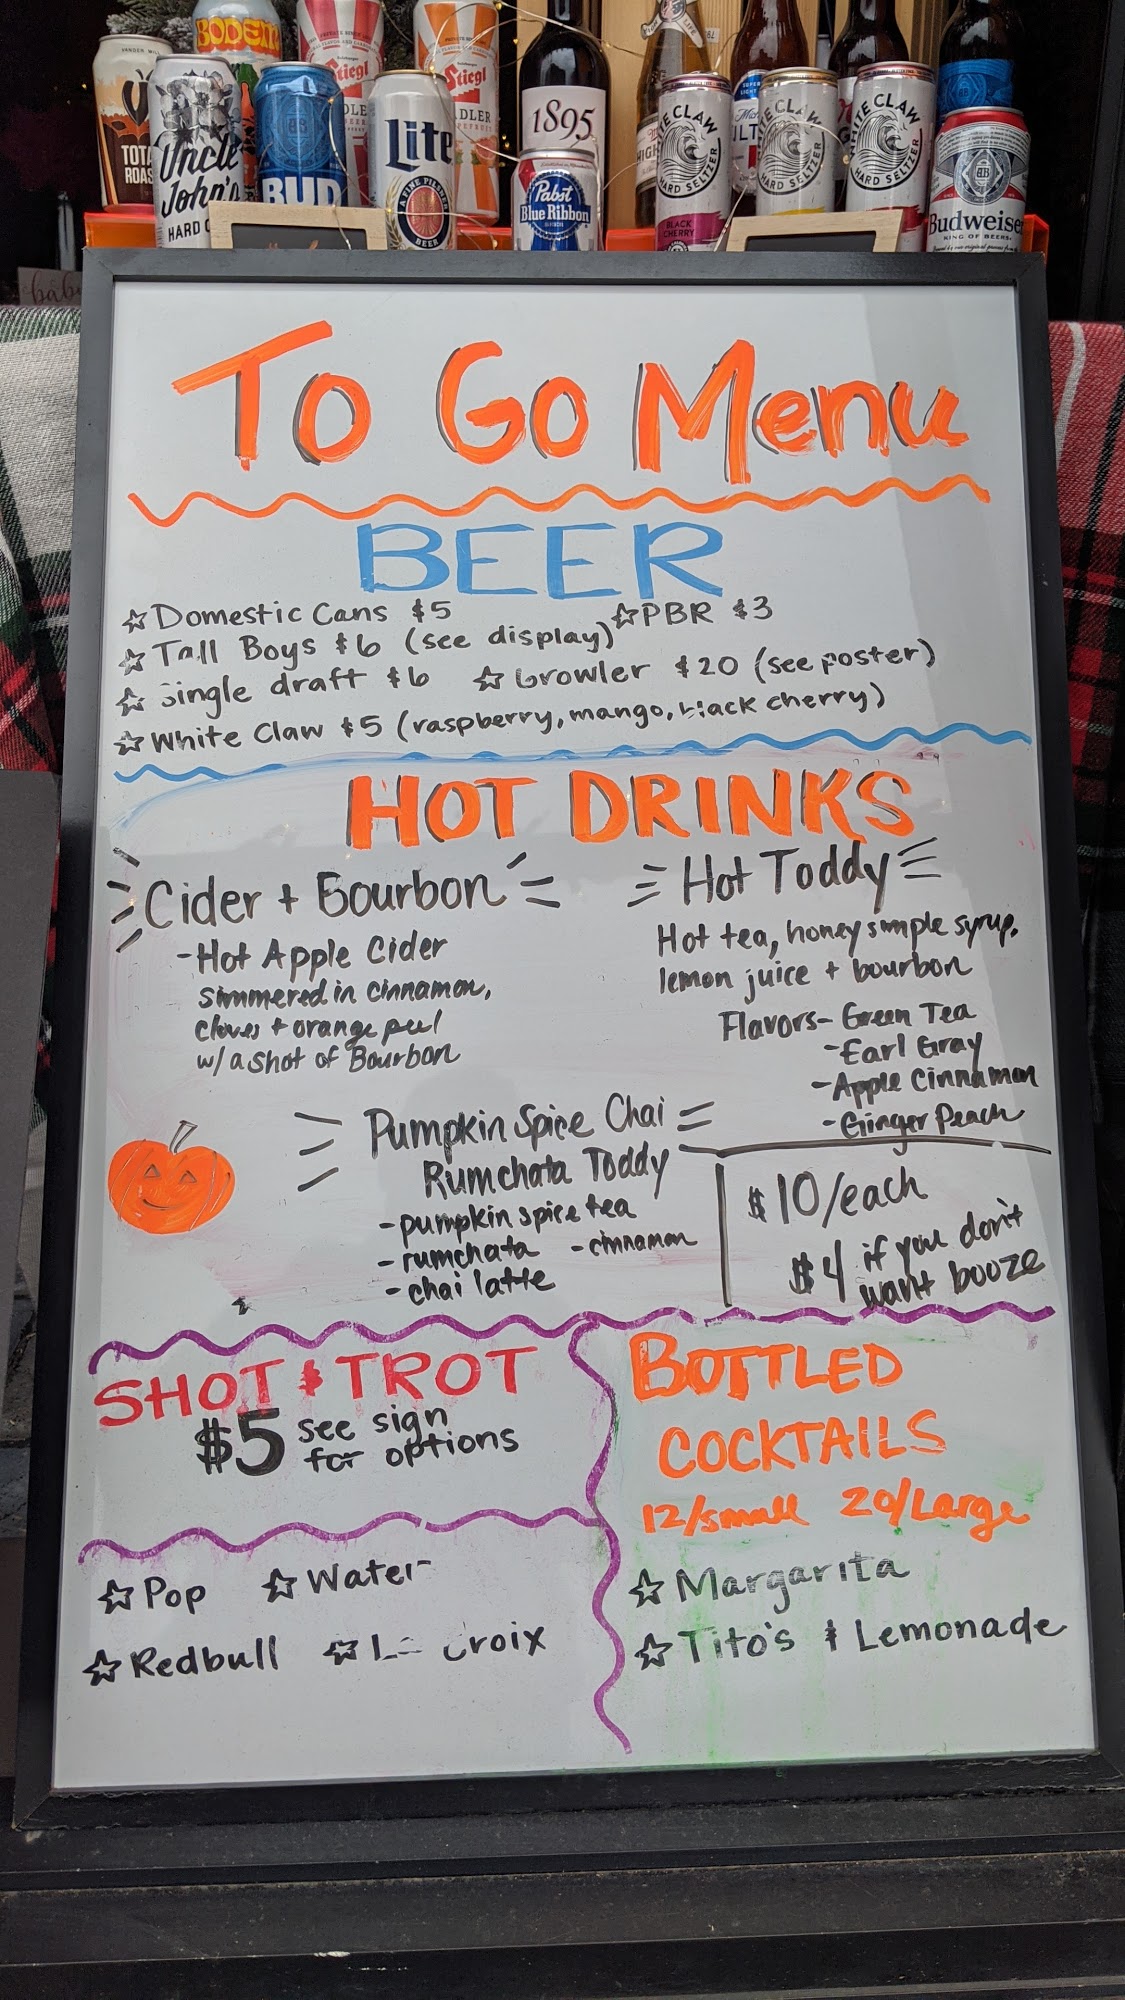 BODEM
TOTA
ROAS
Uncle
John's
HARD C
BUD
Stiegl
DLER
Lite
A FINE PILSNER
BEER
Stiegl
DLER
1895
Pabst
Blue Ribbon
WHITE CLAW
HARD SELTZER
BLACK
CHERRY
HARD SELTZER
HARD SELTZER
Budweiser
KING OF BEERS
To Go Menu
BEER
☆ Domestic Cans $5 ☆ PBR $3
☆ Tall Boys $6 (see display)
☆ Single draft $6 ☆ Growler $20 (see poster)
☆ White Claw $5 (raspberry, mango, black cherry)
HOT DRINKS
Cider + Bourbon
- Hot Apple Cider
simmered in cinnamon,
cloves + orange peel
w/ a shot of Bourbon
Hot Toddy
Hot tea, honey simple syrup,
lemon juice + bourbon
Flavors - Green Tea
- Earl Gray
- Apple Cinnamon
- Ginger Peach
Pumpkin Spice Chai
Rumchata Toddy
- pumpkin spice tea
- rumchata - cinnamon
- chai latte
$10/each
$4 if you don't
want booze
SHOT & TROT
$5 see sign
for options
☆ Pop ☆ Water
☆ Redbull ☆ La Croix
BOTTLED
COCKTAILS
12/small 20/Large
☆ Margarita
☆ Tito's & Lemonade